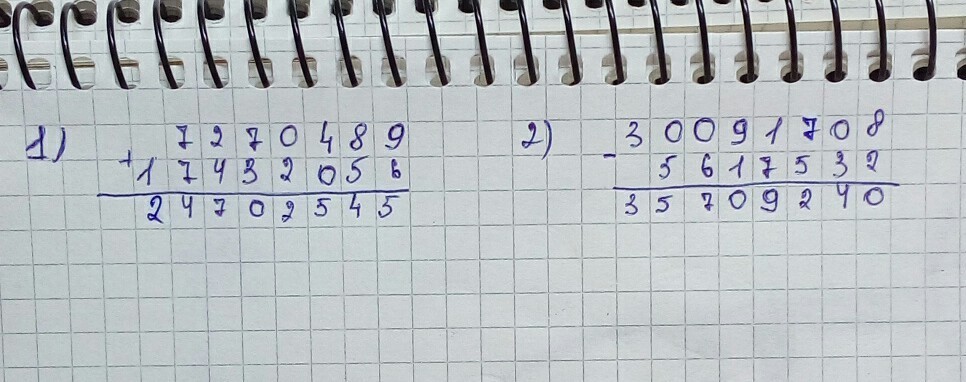 1) 7270489
+17432056
24702545
2) 30091708
- 5617532
35709240